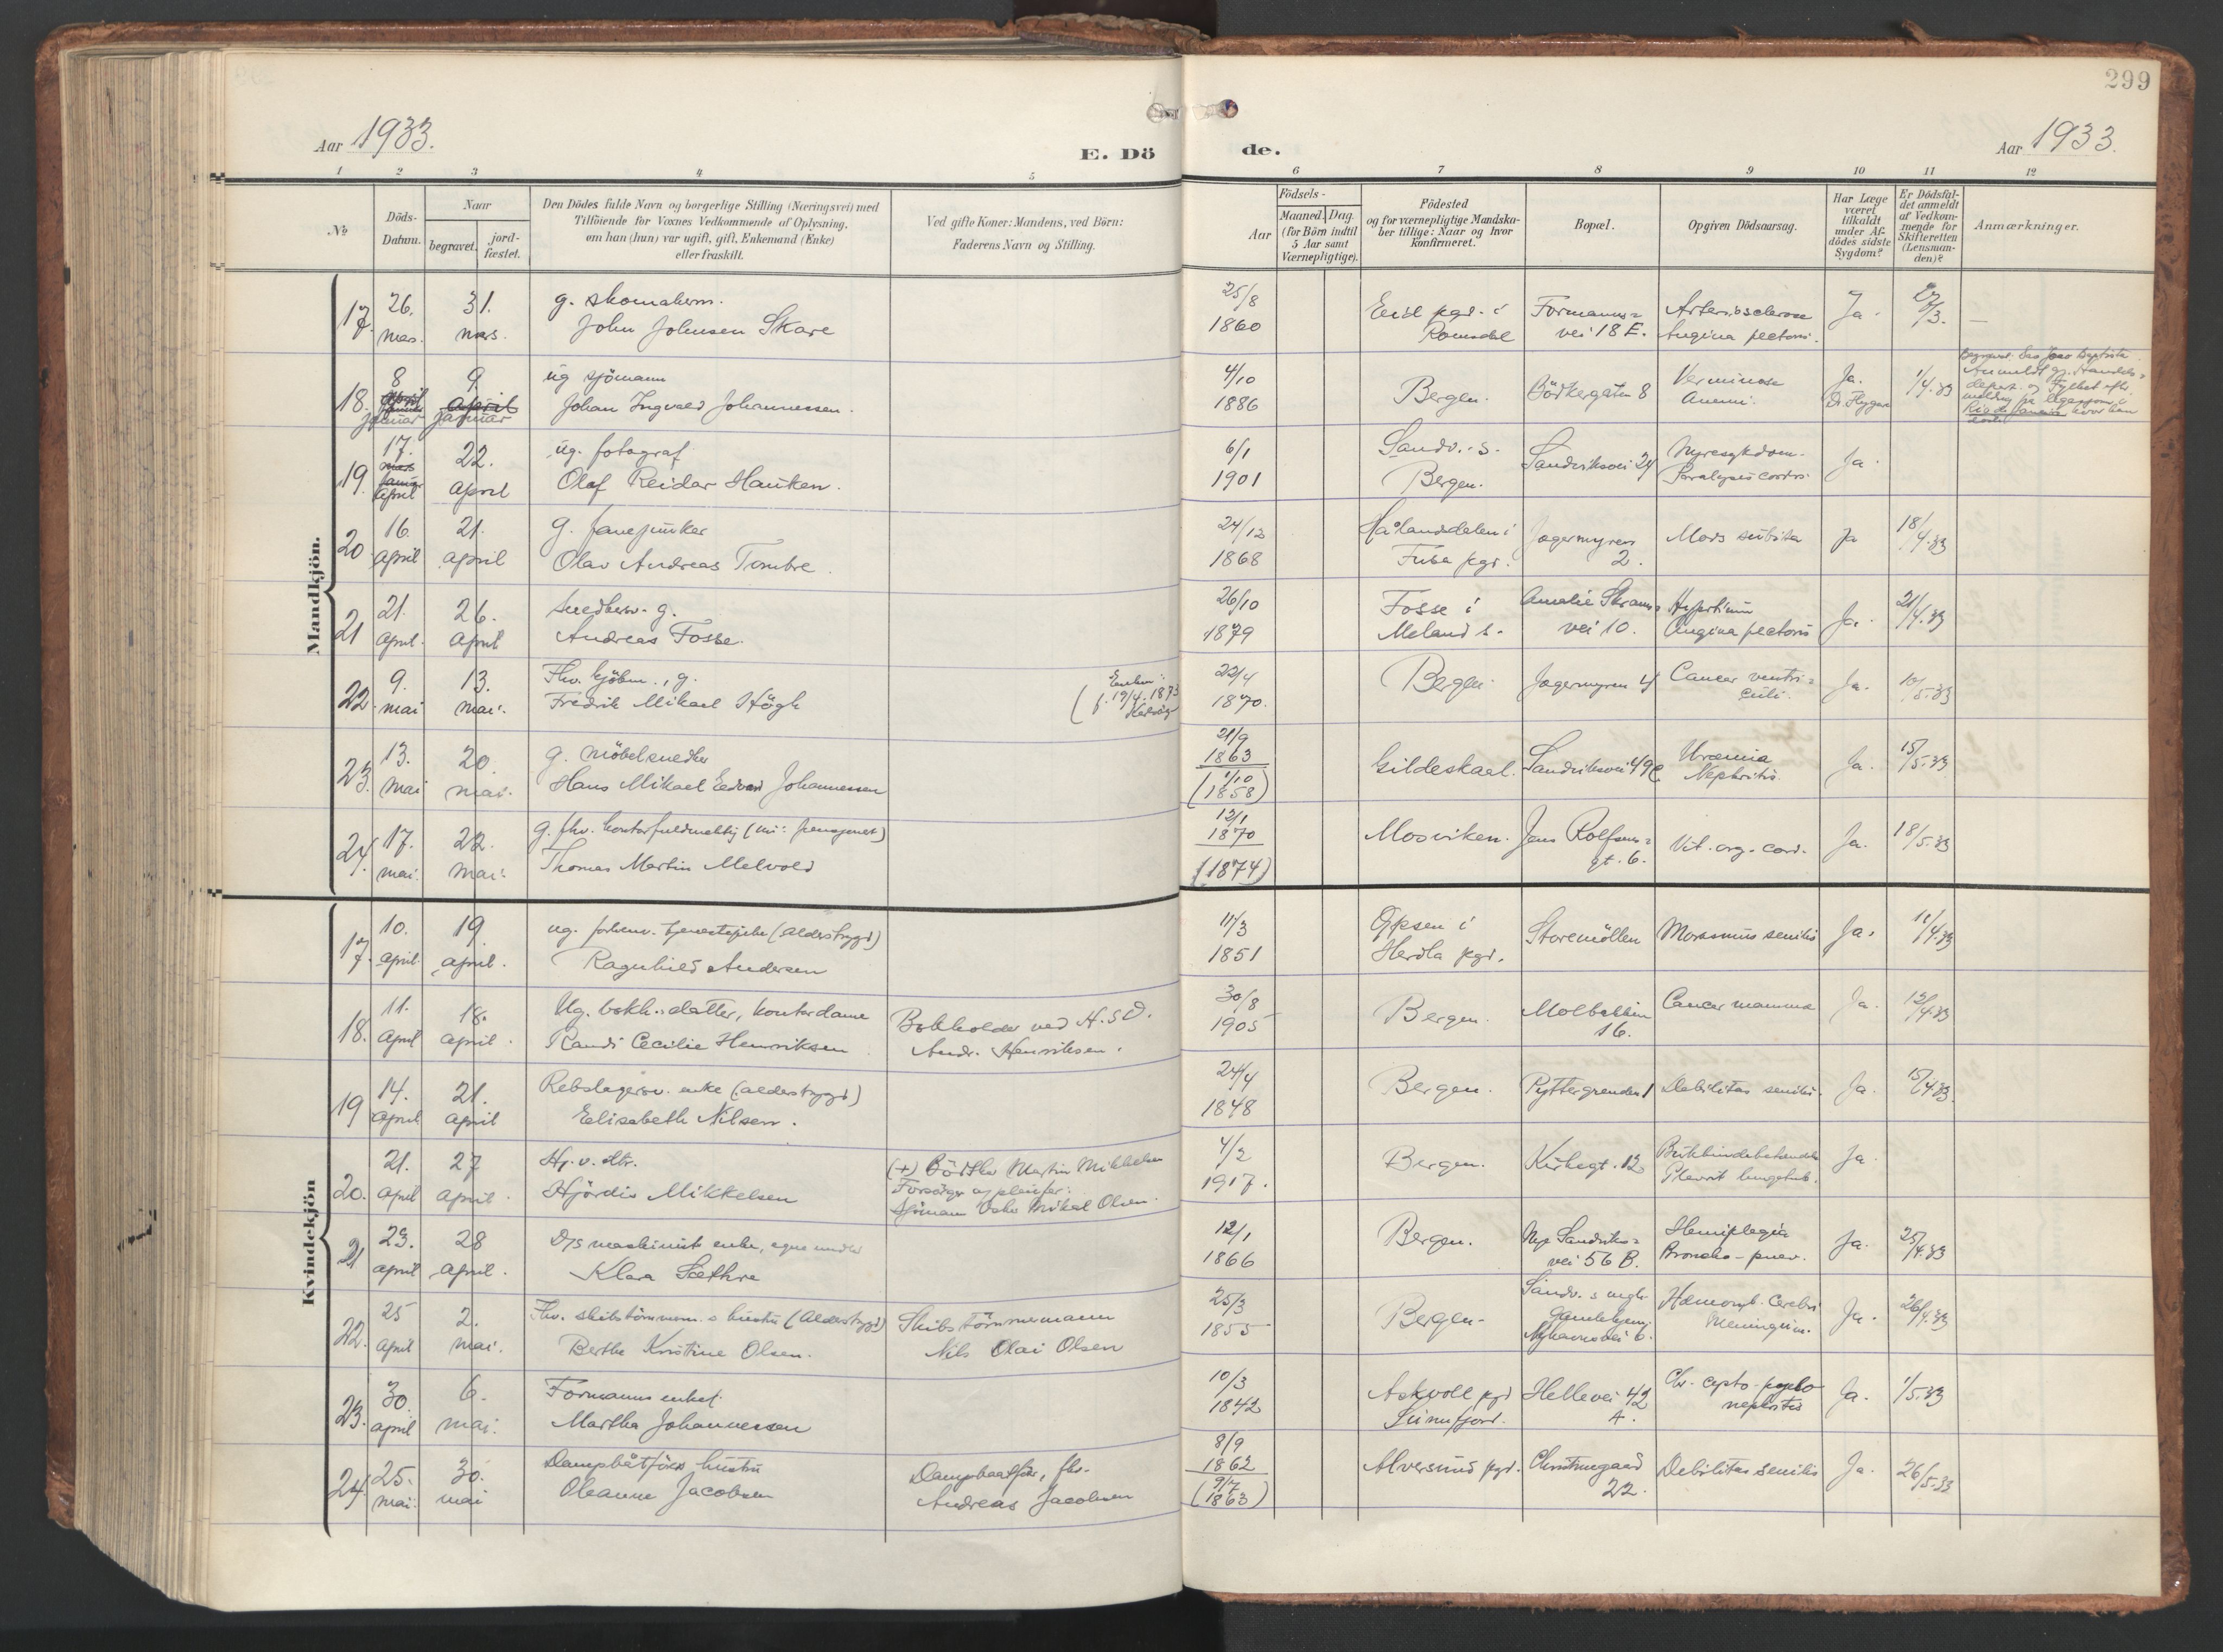 299
Aar 1933.
E. Dö
de.
Aar 1933.
1 2 3 4 5
6 7 8 9 10 11 12
№
Döds-
Datum.
Naar
begravet.
jord-
fæstet.
Den Dödes fulde Navn og borgerlige Stilling (Næringsvei) med
Tilföiende for Voxnes Vedkommende af Oplysning,
om han (hun) var ugift, gift, Enkemand (Enke)
eller fraskilt.
Ved gifte Koner: Mandens, ved Börn:
Faderens Navn og Stilling.
Aar
Födsels-
Maaned. Dag.
(for Börn indtil
5 Aar samt
Værnepligtige).
Födested
og for værnepligtige Mandska-
ber tillige: Naar og hvor
konfirmeret.
Bopæl.
Opgiven Dödsaarsag.
Har Læge
været
tilkaldt
under Af-
dödes sidste
Sygdom?
Er Dödsfal-
det anmeldt
af Vedkom-
mende for
Skifteretten
(Lensman-
den)?
Anmærkninger.
Mandkjön.
17. 26. mars. 31. mars.
g. skomakerm.
John Johnsen Skare
25/8 1860
pgd. i Romsdal
Formanns=
vei 18 E.
Arteriosclerose
Angina pectoris.
Ja.
27/3.
—
18. 8 april januar januar 9. april januar
ug sjömann
Johan Ingvald Johannessen.
4/10 1886
Bergen.
Bödkergaten 8
Verminose
Anemi.
Ja.
1/4.33
19. 17. mars januar april 22. april
ug. fotograf
Olaf Reidar Hauken.
6/1 1901
Sandv. s.
Bergen.
Sandviksvei 24
Nyresykdom.
Paralysis cordis
Ja.
20. 16. april 21. april
g. fanejunker
Olav Andreas Tombre.
24/12 1868
Hålandsdalen i
Fusa pgd.
Jægermyren
2.
Mors subita
Ja
18/4.33
21 21. april. 26. april
snedkersv. g.
Andreas Fosse.
26/10 1879
Fosse i
Meland s.
Amalie Skrams
vei 10.
Angina pectoris
Ja.
21/4.33
22. 9. mai 13. mai.
Fhv. kjöbm., g.
Fredrik Mikael Högh
(Enken:
f. 19/4.1873
22/4 1870.
Bergen.
Jægermyren 4
Cancer ventri=
culi.
Ja.
10/5.33
23. 13. mai 20. mai.
g. möbelsnedker
Hans Mikael Edvard Johannessen
21/9 1863
(1/10 1858)
Gildeskaal.
Sandviksvei 49c
Uræmia
Nephritis.
Ja.
15/5.33
24. 17. mai. 22. mai.
g. fhv. kontorfuldmektig (nu: pensjonert)
Thomas Martin Melvold
12/1 1870
(1874)
Mosviken.
Jens Rolfsens=
gt. 6.
Vit. org. cord.
Ja.
18/5.33
Kvindekjön
17. 10. april 19. april.
ug. forhenv. tjenestepike (alderstrygd)
Ragnhild Andersen
11/3 1851
Herdla pgd.
Storemöllen
Marasmus senilis
Ja.
11/4.33
18. 11. april 18. april.
Ug. bokh.s datter, kontordame
Randi Cecilie Henriksen
Bokholder ved H.S.D.
Andr. Henriksen.
30/8 1905
Bergen.
Molbakken
16.
Cancer mamma
Ja.
12/4.33
19 14. april 21. april
Rebslagersv. enke (alderstrygd)
Elisabeth Nilsen.
24/4 1848
Bergen.
Pyttergrenden 1
Debilitas senilis.
Ja.
15/4.33.
20. 21. april 27 april.
Hj. v. dtr.
Hjördis Mikkelsen
(+) Bödtker Martin Mikkelsen
Forsörger og pleiefar:
Sjömann Oskar Mikal Olsen.
4/2 1917.
Bergen.
Kirkegt. 12
Plevrit lungetub.
Ja
21 23. april 28 april.
D/S maskinist enke, egne midler
Klara Sæthre
12/1 1866
Bergen.
Nye Sandviks=
vei 56 B.
Hemiplegia
Broncho-pnev.
Ja.
25/4.33
22. 25 april 2. mai.
Fhv. skibstömmerm.s hustru (Alderstrygd)
Berthe Kristine Olsen.
Skibstömmermann
Nils Olai Olsen
25/3 1855
Bergen.
Sandv. s
Gamlehjem,
Nyhavnsvei 6.
Hæmorrh. cerebri
Ja.
26/4.33
23. 30. april 6. mai.
Formanns enke
Martha Johannessen
10/3 1842
Askvoll pgd
Sunnfjord.
Hellevei 42
A.
Chr. cysto-pyelo
nephritis
Ja.
1/5.33
24. 25. mai. 30. mai
Dampbåtförers hustru
Oleanne Jacobsen
Dampbaatför., fhv.
Andreas Jacobsen
8/9 1862
(9/7 1863)
Alversund pgd.
Christinegaard
22.
Debilitas senilis
Ja.
26/5.33